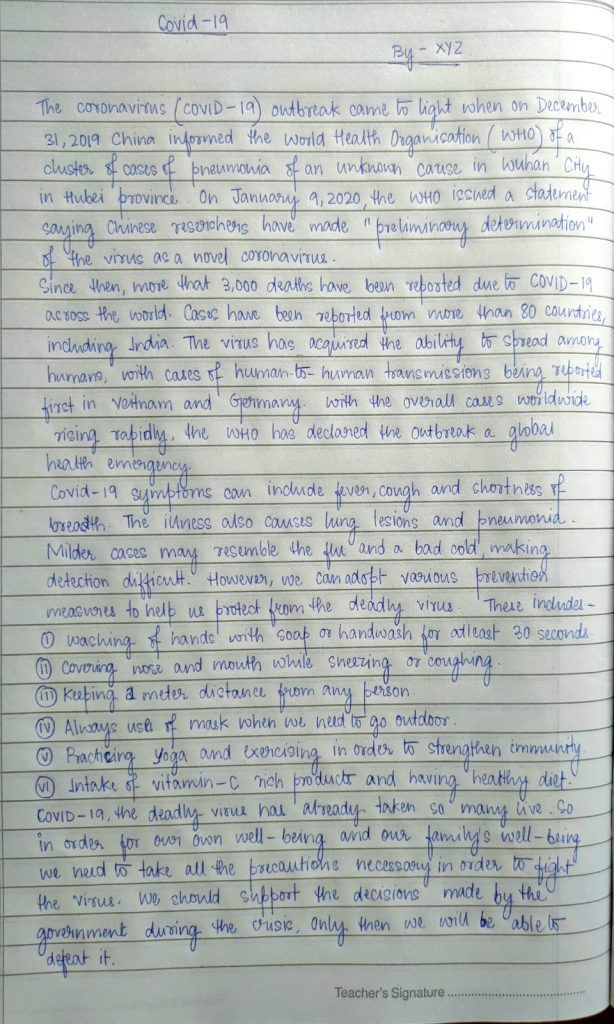 Covid-19
By - XYZ
The coronavirus (COVID-19) outbreak came to light when on December
31, 2019 China informed the World Health Organisation (WHO) of a
cluster of cases of pneumonia of an unknown cause in Wuhan City
in Hubei province. On January 9, 2020, the WHO issued a statement
saying Chinese reserchers have made "preliminary determination"
of the virus as a novel coronavirus.
Since then, more that 3,000 deaths have been reported due to COVID-19
across the world. Cases have been reported from more than 80 countries,
including India. The virus has acquired the ability to spread among
humans, with cases of human-to-human transmissions being reported
first in Veitnam and Germany. With the overall cases worldwide
rising rapidly, the WHO has declared the outbreak a global
health emergency.
Covid-19 symptoms can include fever, cough and shortness of
breadth. The illness also causes lung lesions and pneumonia.
Milder cases may resemble the flu and a bad cold, making
detection difficult. However, we can adopt various prevention
measures to help us protect from the deadly virus. These includes-
(i) Washing of hands with soap or handwash for atleast 30 seconds.
(ii) Covering nose and mouth while sneezing or coughing.
(iii) Keeping a meter distance from any person.
(iv) Always use of mask when we need to go outdoor.
(v) Practicing Yoga and exercising in order to strengthen immunity.
(vi) Intake of vitamin-C rich products and having healthy diet.
COVID-19, the deadly virus has already taken so many live. So
in order for our own well-being and our family's well-being
we need to take all the precautions necessary in order to fight
the virus. We should support the decisions made by the
government during the crusis. Only then we will be able to
defeat it.
Teacher's Signature